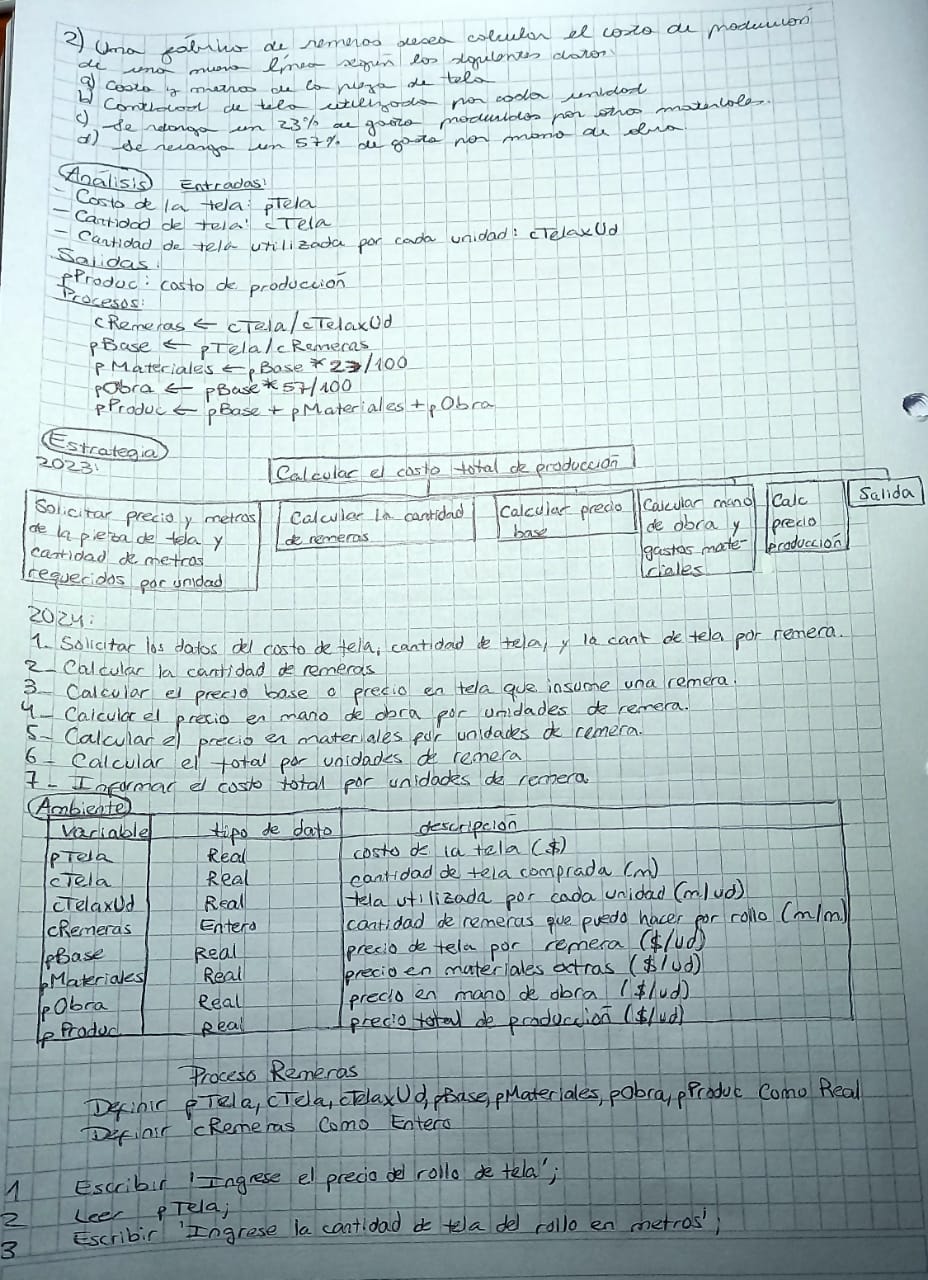 2) Una fábrica de remeras desea calcular el costo de producción
de una nueva línea según los siguientes datos:
a) Costo y metros de la pieza de tela
b) Cantidad de tela utilizada por cada unidad
c) Se recarga un 23% de gasto producidos por otros materiales.
d) Se recarga un 57% de gasto por mano de obra
Análisis Entradas:
- Costo de la tela: pTela
- Cantidad de tela: cTela
- Cantidad de tela utilizada por cada unidad: cTelaxUd
Salidas:
pProduc: costo de producción
Procesos:
cRemeras ← cTela/cTelaxUd
pBase ← pTela/cRemeras
pMateriales ← pBase * 23/100
pObra ← pBase * 57/100
pProduc ← pBase + pMateriales + pObra
Estrategia
2023:
Calcular el costo total de producción
Solicitar precio y metros
de la pieza de tela y
cantidad de metros
requeridos por unidad
Calcular la cantidad
de remeras
Calcular precio
base
Calcular mano
de obra y
gastos mate-
riales
Calc
precio
producción
Salida
2024:
1- Solicitar los datos del costo de tela, cantidad de tela, y la cant de tela por remera.
2- Calcular la cantidad de remeras
3- Calcular el precio base o precio en tela que insume una remera.
4- Calcular el precio en mano de obra por unidades de remera.
5- Calcular el precio en materiales por unidades de remera.
6- Calcular el total por unidades de remera
7- Informar el costo total por unidades de remera
Ambiente
Variable tipo de dato descripción
pTela Real costo de la tela ($)
cTela Real cantidad de tela comprada (m)
cTelaxUd Real tela utilizada por cada unidad (m/ud)
cRemeras Entero cantidad de remeras que puedo hacer por rollo (m/m)
pBase Real precio de tela por remera ($/ud)
pMateriales Real precio en materiales extras ($/ud)
pObra Real precio en mano de obra ($/ud)
pProduc Real precio total de producción ($/ud)
Proceso Remeras
Definir pTela, cTela, cTelaxUd, pBase, pMateriales, pObra, pProduc Como Real
Definir cRemeras Como Entero
1 Escribir 'Ingrese el precio del rollo de tela';
2 Leer pTela;
3 Escribir 'Ingrese la cantidad de tela del rollo en metros';